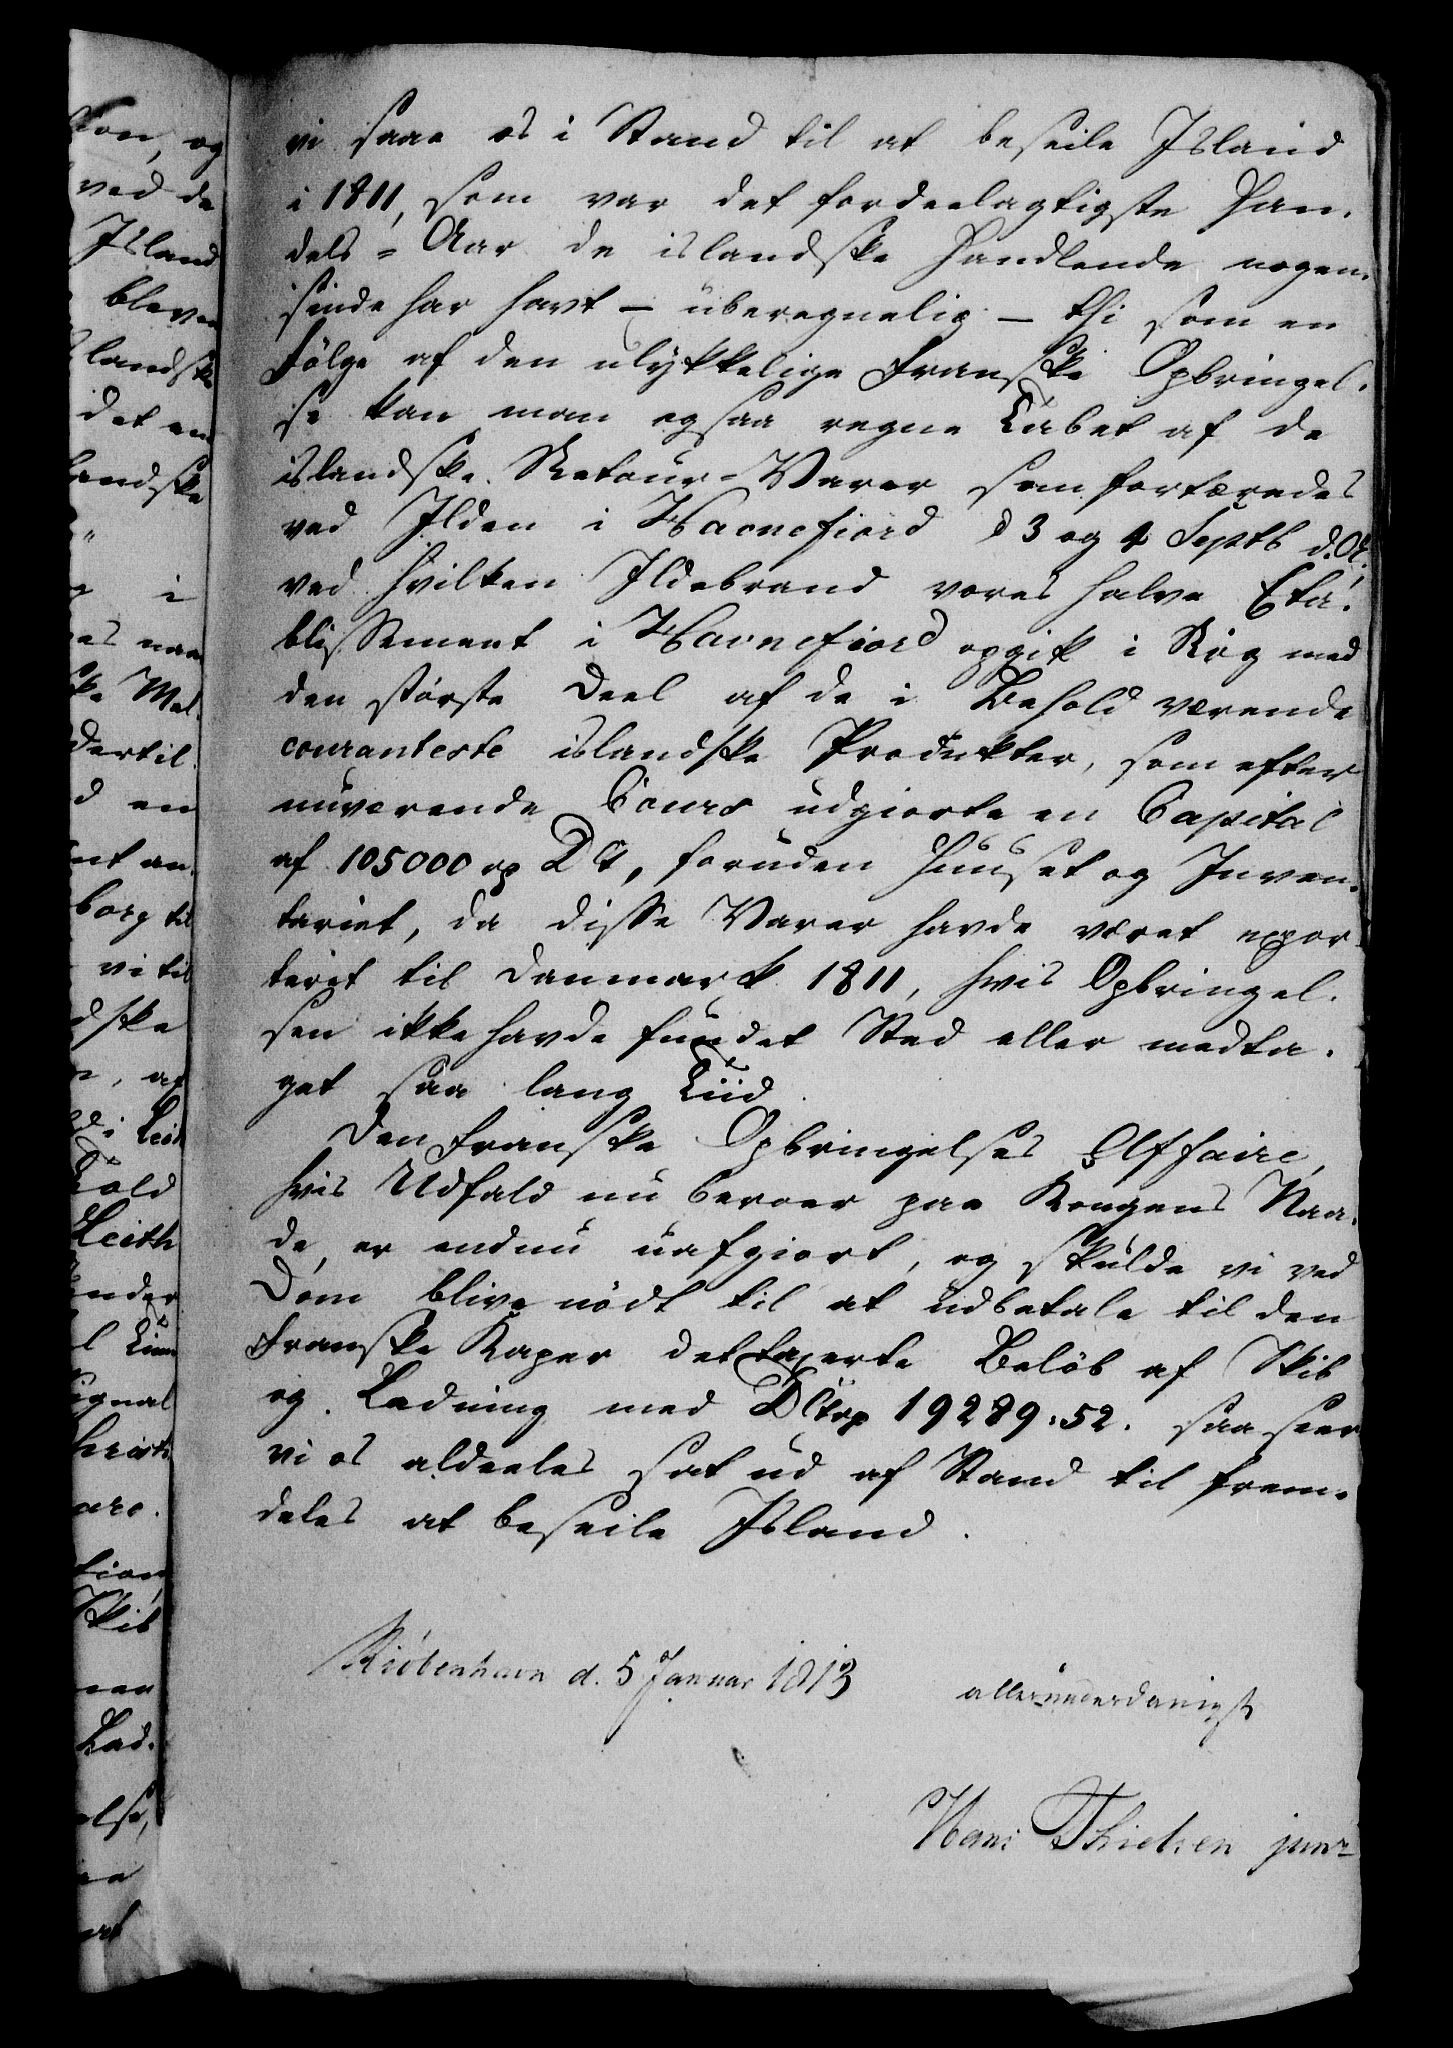 vi saae os i Stand til at beseile Island
i 1811, som var det fordeelagtigste Han-
dels-Aar de islandske Handlende nogen-
sinde har havt – uberegnelig – thi som en
Fölge af den ulykkelige Franske Opbringel-
se kan man ogsaa regne Tabet af de
islandske Retour-Varer som fortæredes
ved Ilden i Havnefiord d 3 og 4 Septb d. A.,
ved hvilken Ildebrand vores halve Eta-
blissement i Havnefiord opgik i Røg med
den største Deel af de i Behold værende
couranteste islandske Produkter, som efter
nuværende Cours udgiorte en Capital
af 105000 rp DC, foruden Huuset og Inven-
tariet, da disse Varer havde været expor-
teret til Danmark 1811, hvis Opbringel-
sen ikke havde fundet Sted eller medta-
get saa lang Tiid.
Den franske Opbringelses Affaire,
hvis Udfald nu beroer paa Kongens Naa-
de, er endnu uafgiort, og skulde vi ved
Dom blive nödt til at udbetale til den
Franske Kaper det taxerte Belöb af Skib
og Ladning med DC rp 19289.52. saa seer
vi os aldeeles sat ud af Stand til frem-
deles at beseile Island.
Kiöbenhavn d. 5 Januar 1813
allerunderdanigst
Hans Thielsen junr